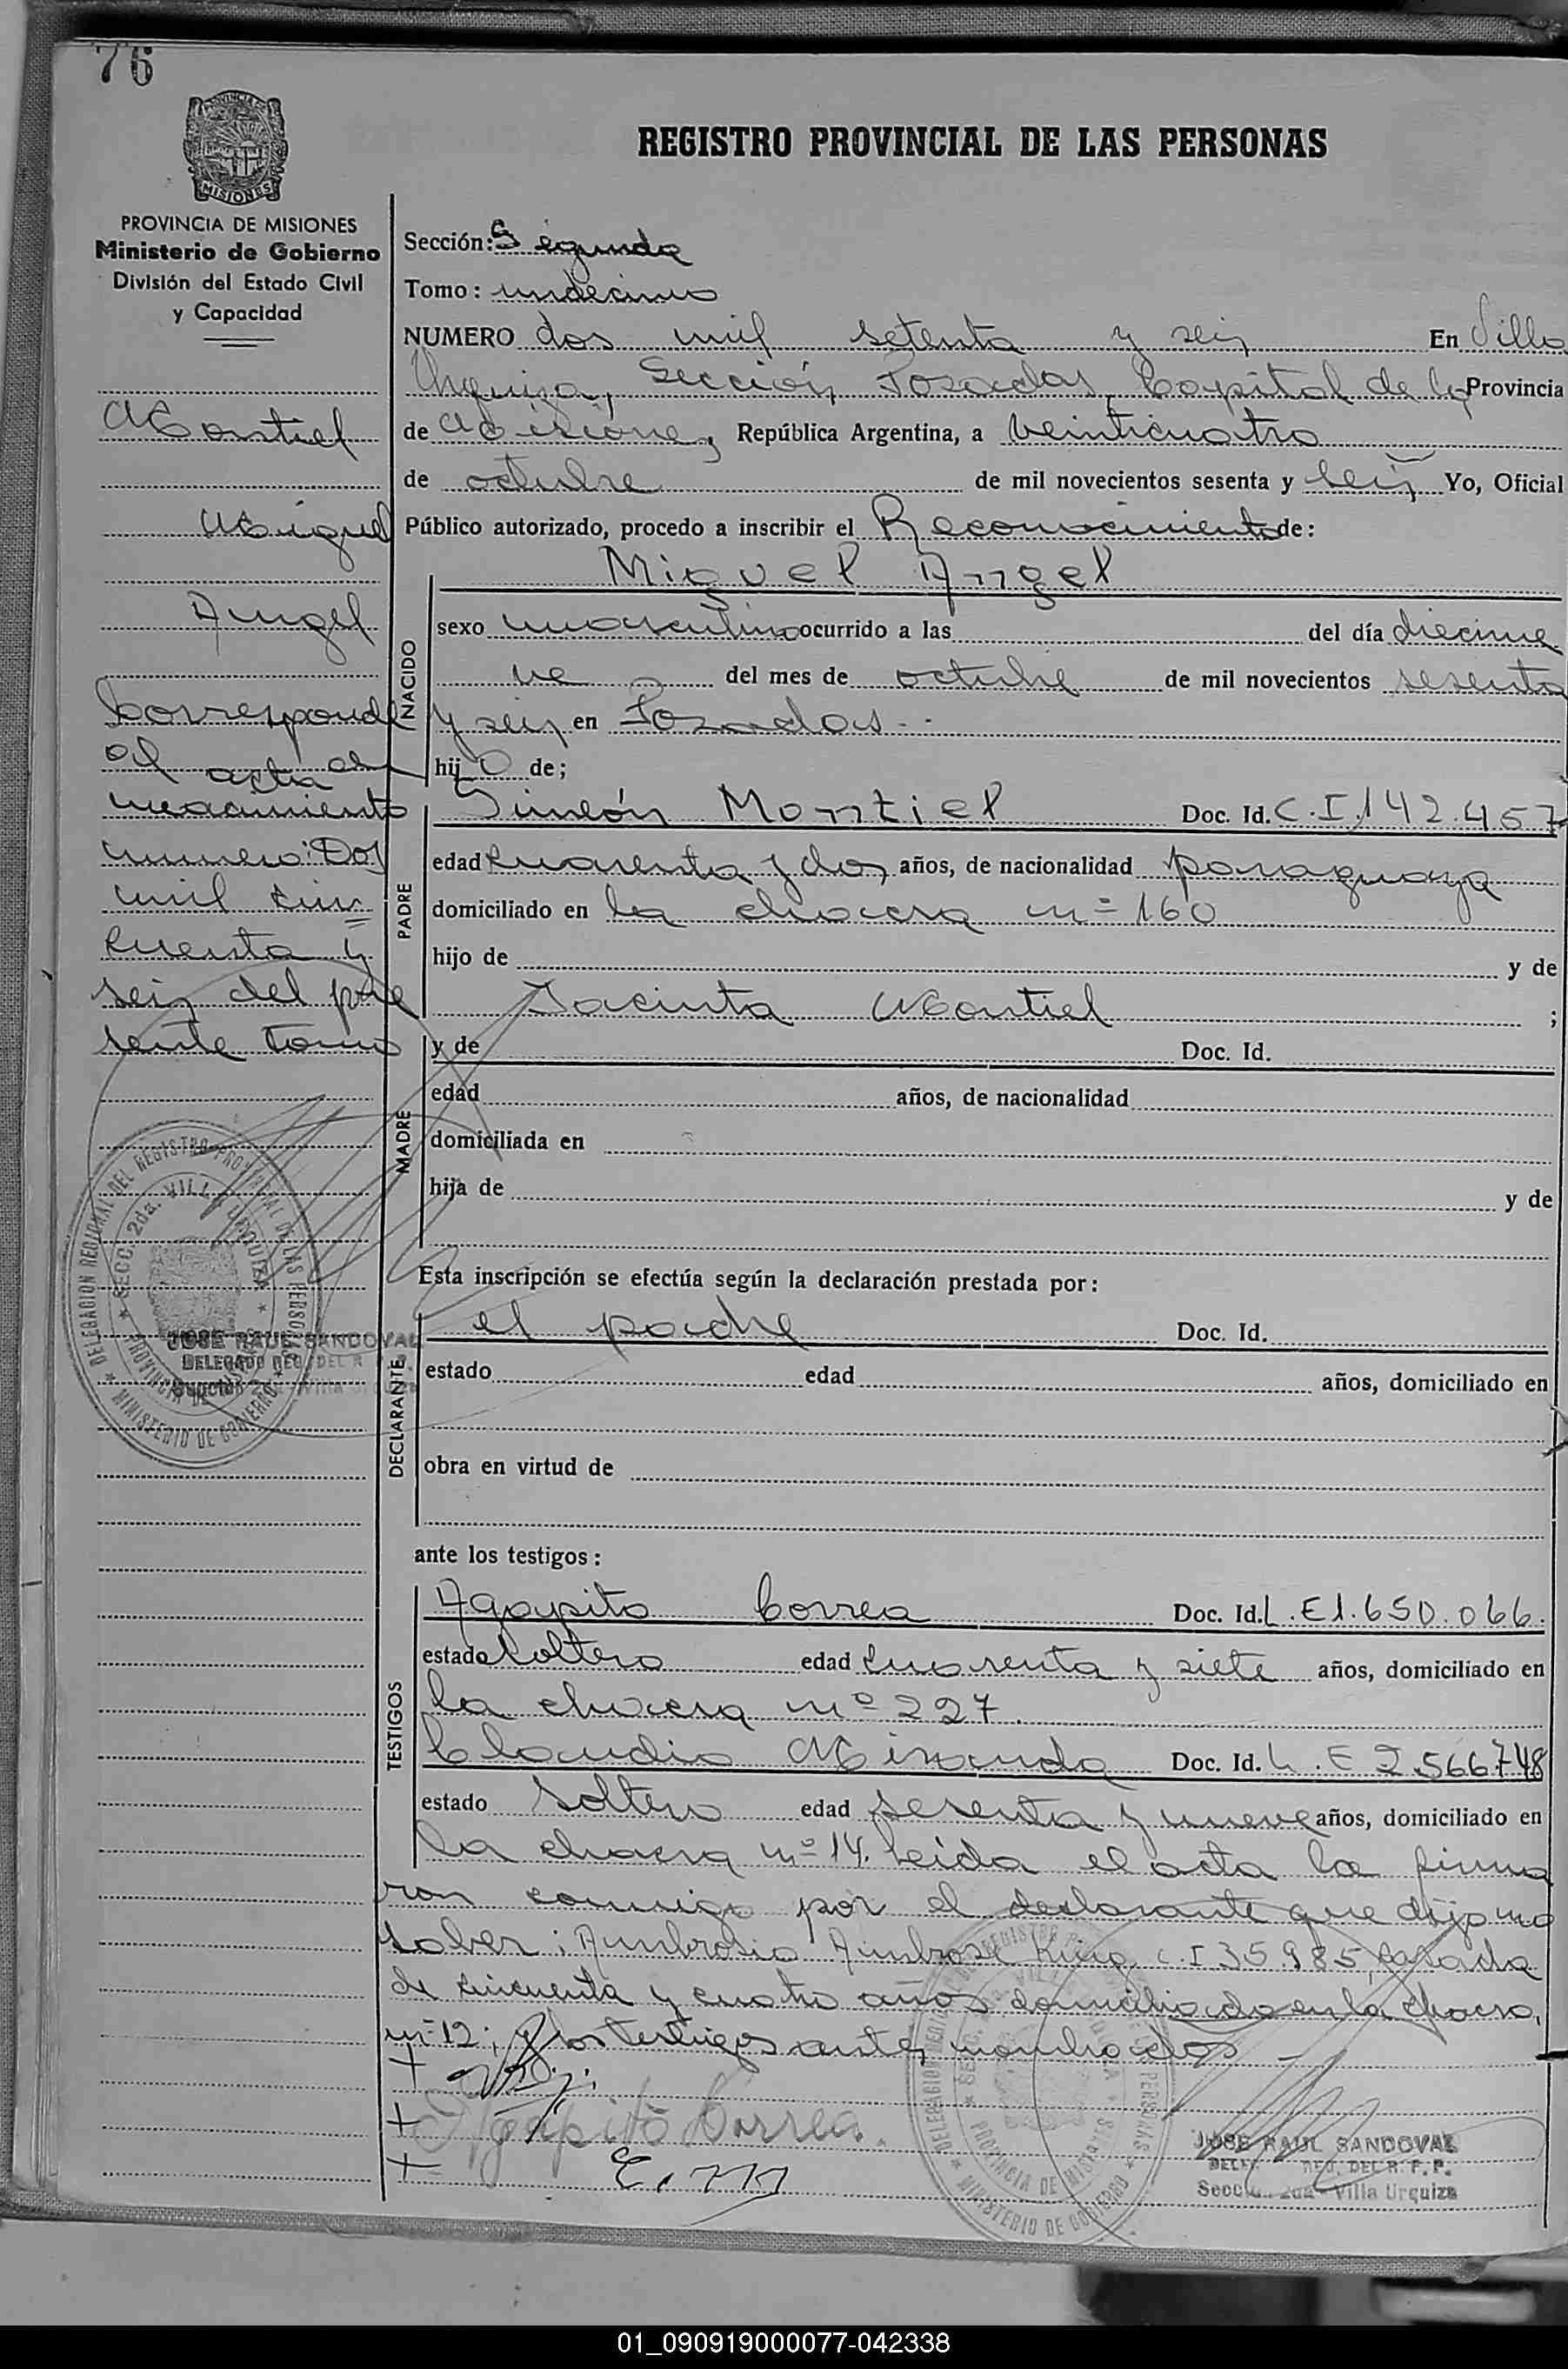 76
REGISTRO PROVINCIAL DE LAS PERSONAS
MISIONES
PROVINCIA DE MISIONES
Ministerio de Gobierno
División del Estado Civil
y Capacidad
Montiel
Miguel
Angel
Corresponde
al acta de
nacimiento
numero: Dos
mil cin
cuenta y
seis del pre
sente tomo
Sección: Segunda
Tomo: undecimo
NUMERO dos mil setenta y seis En Villa
Urquiza, Sección Posadas, Capital de la Provincia
de Misiones, República Argentina, a veinticuatro
de octubre de mil novecientos sesenta y seis Yo, Oficial
Público autorizado, procedo a inscribir el Reconocimiento de:
NACIDO
Miguel Angel
sexo masculino ocurrido a las del día diecinue
ve del mes de octubre de mil novecientos sesenta
y seis en Posadas.-
hijo de;
PADRE
Simeón Montiel Doc. Id. C.I.142.457
edad cuarenta y dos años, de nacionalidad paraguaya
domiciliado en la chacra nº 160
hijo de y de
Jacinta Montiel ;
MADRE
y de Doc. Id.
edad años, de nacionalidad
domiciliada en
hija de y de
Esta inscripción se efectúa según la declaración prestada por:
DECLARANTE
el padre Doc. Id.
estado edad años, domiciliado en
obra en virtud de
ante los testigos:
TESTIGOS
Agapito Correa Doc. Id. L.E1.650.066.
estado soltero edad cuarenta y siete años, domiciliado en
la chacra nº 227.
Claudio Miranda Doc. Id. L.E 2.566748
estado soltero edad sesenta y nueve años, domiciliado en
la chacra nº 14. Leida el acta la firma
ron conmigo por el declarante que dijo no
saber: Ambrosio Ambrose King C.I 35.985, casado
de cincuenta y cuatro años domiciliado en la chacra,
nº 12; y los testigos antes nombrados -
Agapito Correa.
DELEGACION REGIONAL DEL REGISTRO PROVINCIAL DE LAS PERSONAS
MINISTERIO DE GOBIERNO
SECC. 2da. VILLA URQUIZA
PROVINCIA DE MISIONES
JOSE RAUL SANDOVAL
DELEGADO REG. DEL R
Sección 2da Villa Ur
DELEGACION REGIONAL DEL REGISTRO PROVINCIAL DE LAS PERSONAS
MINISTERIO DE GOBIERNO
PROVINCIA DE MISIONES
JOSE RAUL SANDOVAL
REG. DEL R. P. P.
Sección 2da Villa Urquiza
01_090919000077-042338